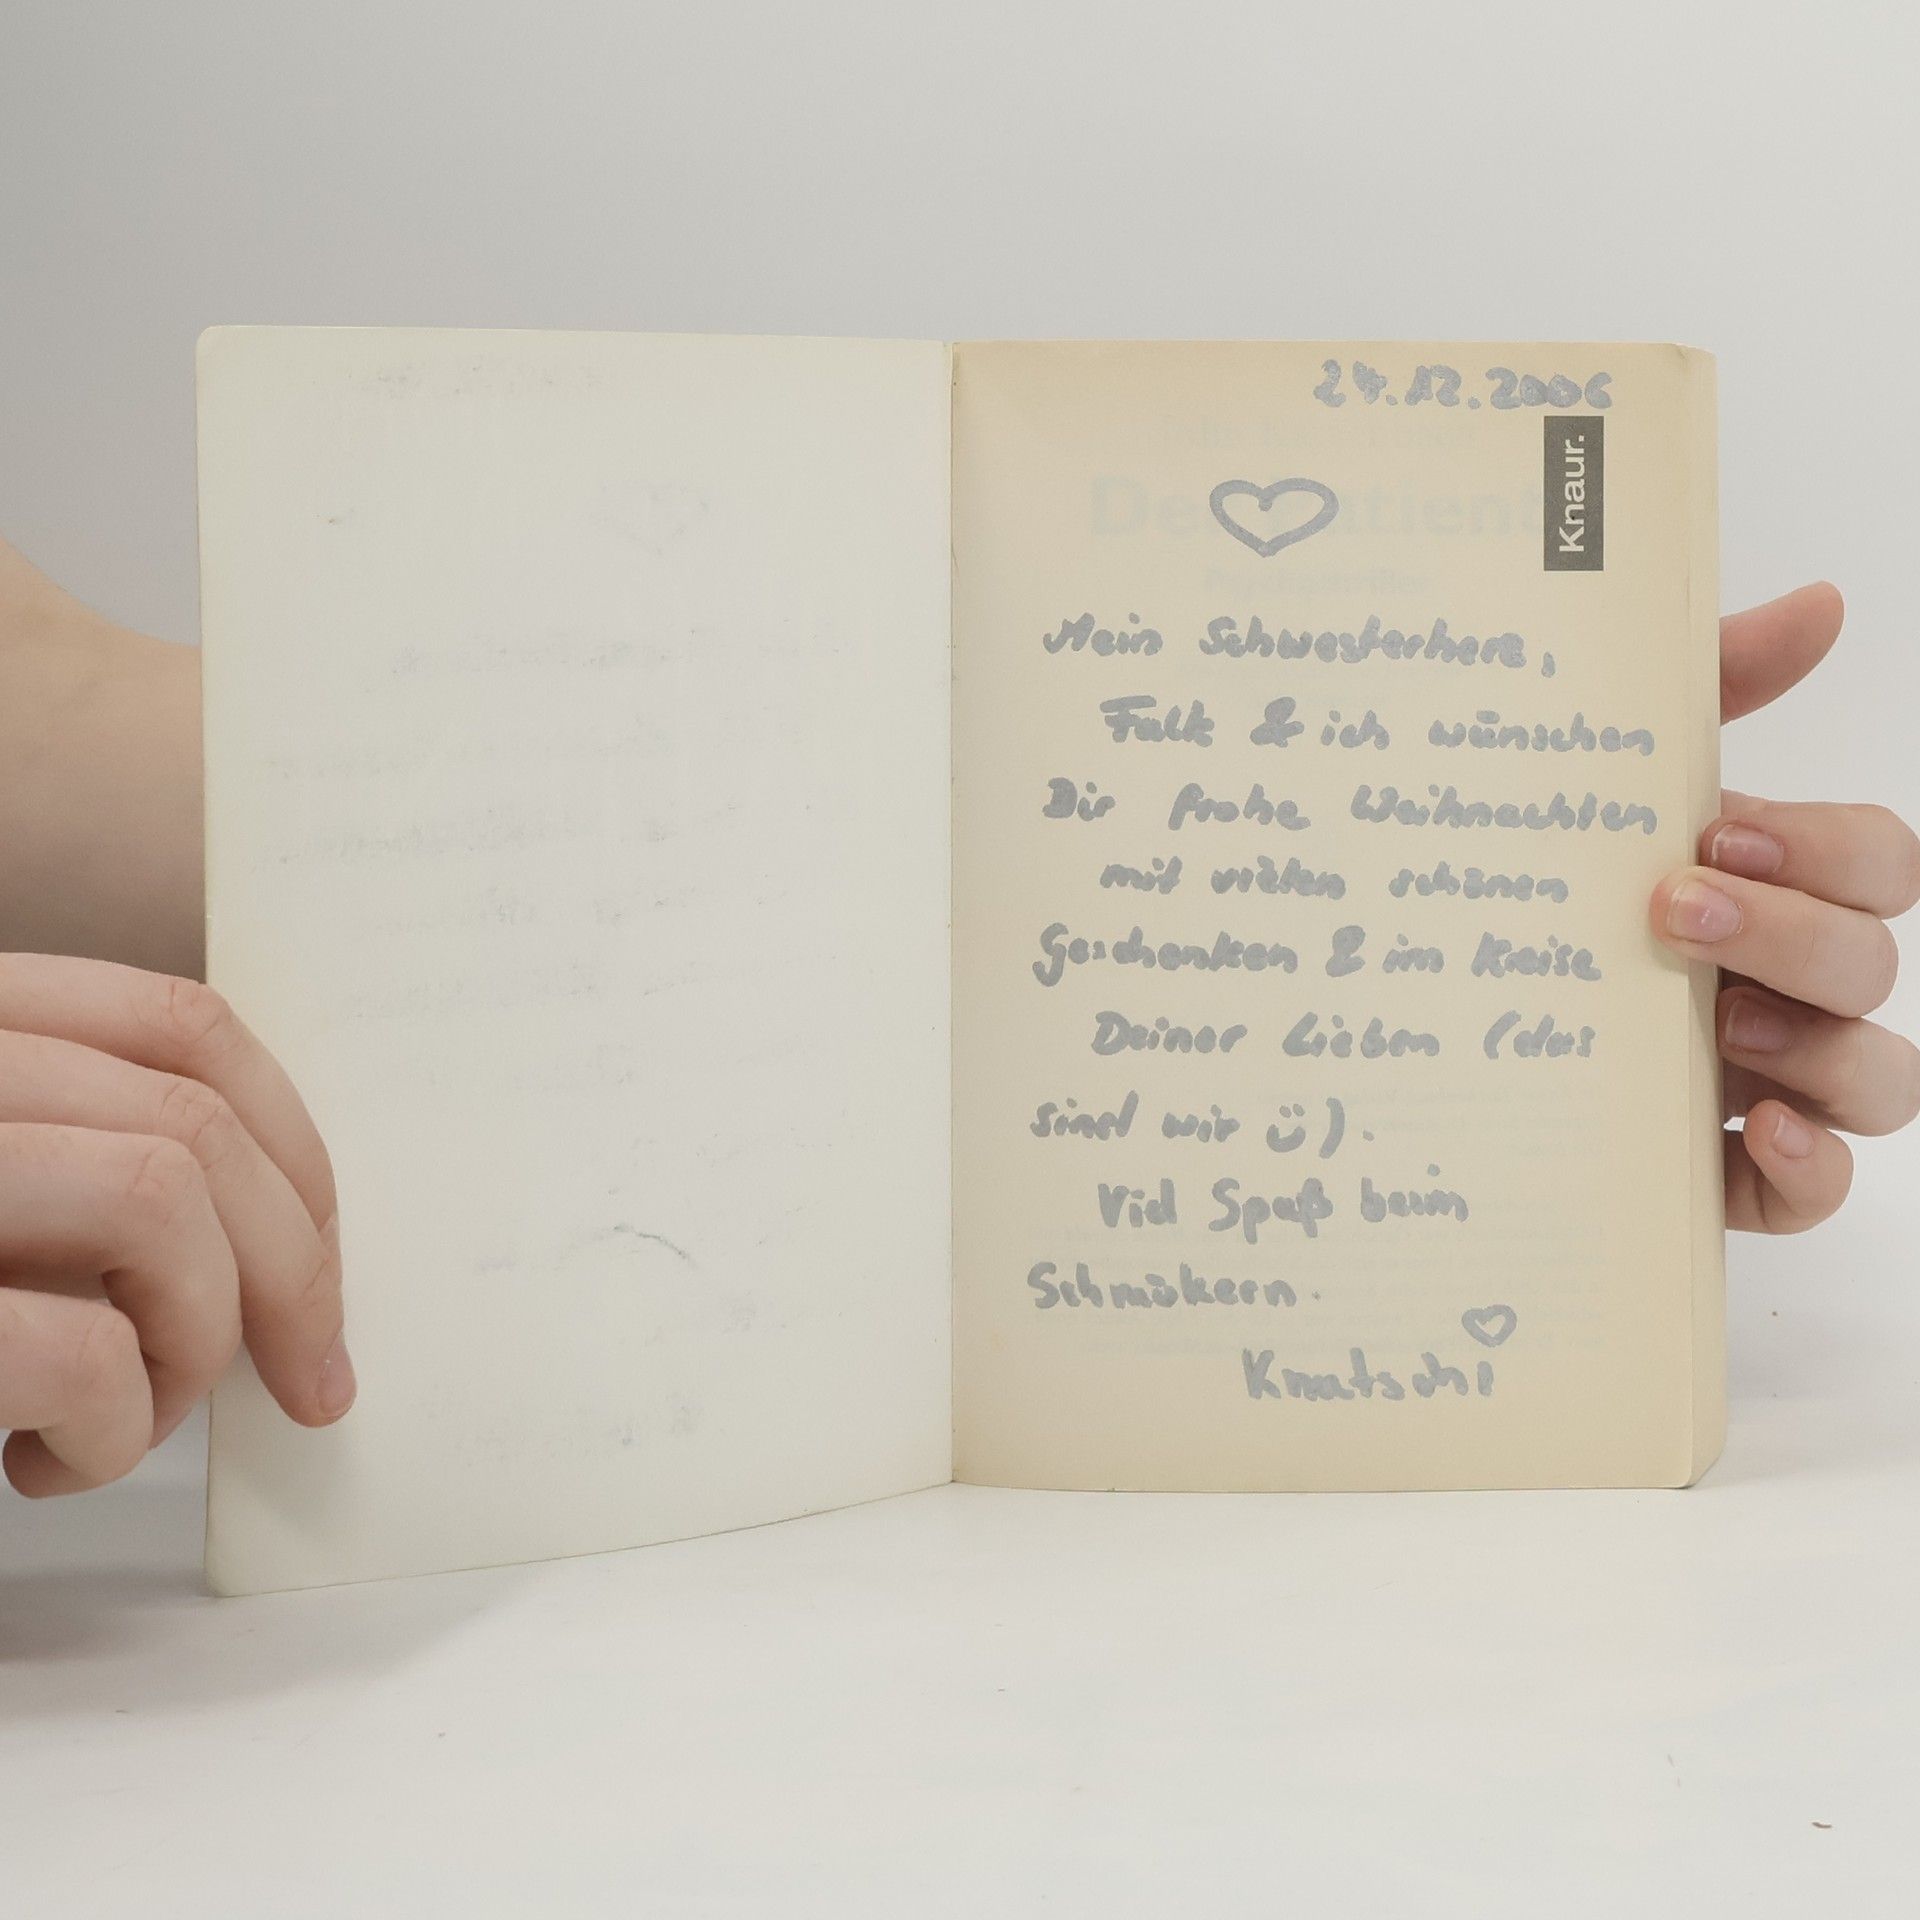 24.12.2006
Knaur.
Mein Schwesterherz,
Falk & ich wünschen
Dir frohe Weihnachten
mit vielen schönen
Geschenken & im Kreise
Deiner Lieben (das
sind wir ü).
Viel Spaß beim
Schmökern.
Knatschi